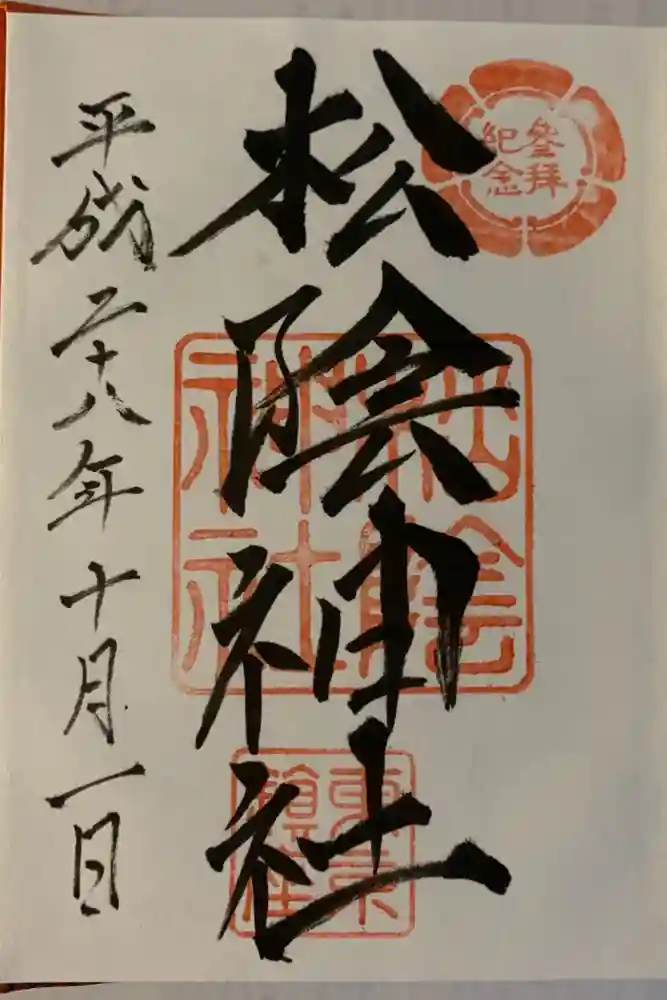 參拜
紀念
松陰神社
松陰
神社
東京
鎮座
平成二十八年十月一日